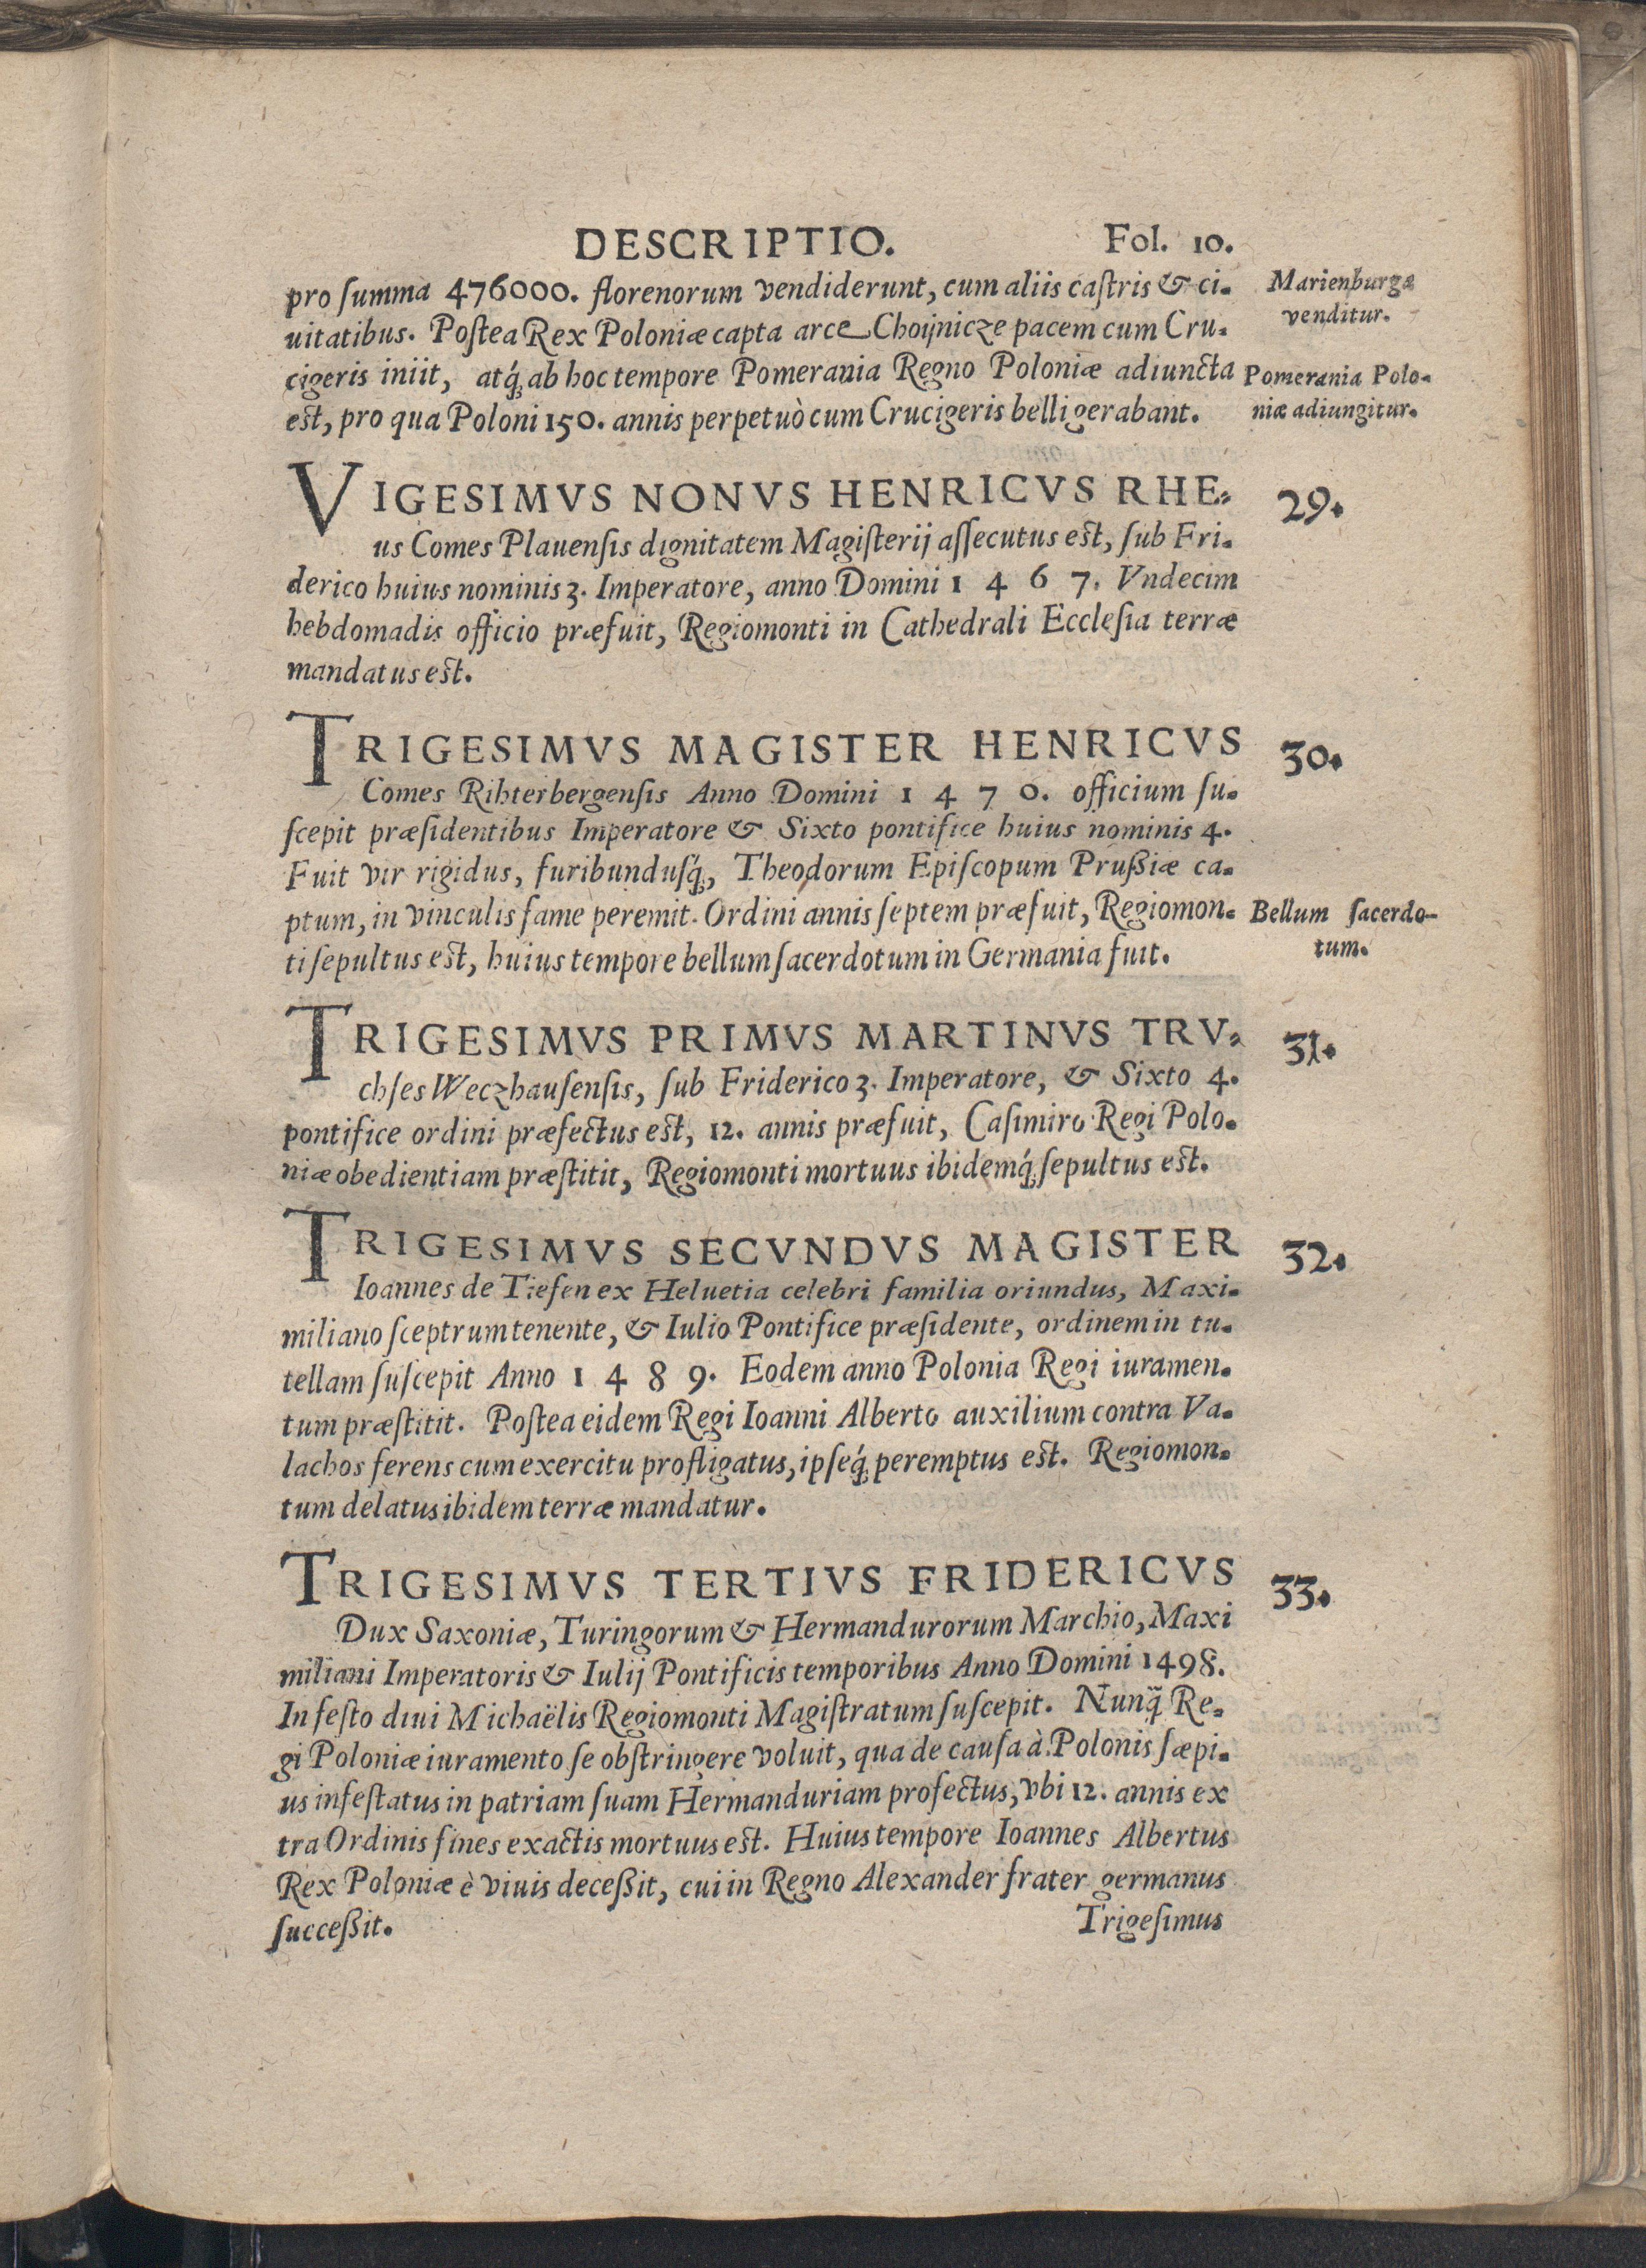 DESCRIPTIO. Fol. 10.
pro ſumma 476000. florenorum vendiderunt, cum aliis caſtris & ci-
uitatibus. Poſtea Rex Poloniæ capta arce Choijnicze pacem cum Cru-
cigeris iniit, atq́; ab hoc tempore Pomerania Regno Poloniæ adiuncta
est, pro qua Poloni 150. annis perpetuò cum Crucigeris belligerabant.
Marienburgæ
venditur.
Pomerania Polo-
niæ adiungitur.
VIGESIMVS NONVS HENRICVS RHE-
us Comes Plauenſis dignitatem Magiſterij aſſecutus est, ſub Fri-
derico huius nominis 3. Imperatore, anno Domini 1 4 6 7. Vndecim
hebdomadis officio præfuit, Regiomonti in Cathedrali Eccleſia terræ
mandatus est.
29.
TRIGESIMVS MAGISTER HENRICVS
Comes Rihterbergenſis Anno Domini 1 4 7 0. officium ſu-
ſcepit præſidentibus Imperatore & Sixto pontifice huius nominis 4.
Fuit vir rigidus, furibundusq́;, Theodorum Epiſcopum Prußiæ ca-
ptum, in vinculis fame peremit. Ordini annis ſeptem præfuit, Regiomon-
ti ſepultus est, huius tempore bellum ſacerdotum in Germania fuit.
30.
Bellum ſacerdo-
tum.
TRIGESIMVS PRIMVS MARTINVS TRV-
chſes Weczhauſenſis, ſub Friderico 3. Imperatore, & Sixto 4.
pontifice ordini præfectus est, 12. annis præfuit, Caſimiro Regi Polo-
niæ obedientiam præſtitit, Regiomonti mortuus ibidemq́; ſepultus est.
31.
TRIGESIMVS SECVNDVS MAGISTER
Ioannes de Tiefen ex Heluetia celebri familia oriundus, Maxi-
miliano ſceptrum tenente, & Iulio Pontifice præſidente, ordinem in tu-
tellam ſuſcepit Anno 1 4 8 9. Eodem anno Polonia Regi iuramen-
tum præſtitit. Poſtea eidem Regi Ioanni Alberto auxilium contra Va-
lachos ferens cum exercitu profligatus, ipſeq́; peremptus est. Regiomon-
tum delatus ibidem terræ mandatur.
32.
TRIGESIMVS TERTIVS FRIDERICVS
Dux Saxoniæ, Turingorum & Hermandurorum Marchio, Maxi
miliani Imperatoris & Iulij Pontificis temporibus Anno Domini 1498.
In feſto diui Michaëlis Regiomonti Magiſtratum ſuſcepit. Nunq̃ Re-
gi Poloniæ iuramento ſe obſtringere voluit, qua de cauſa à Polonis ſæpi-
us infeſtatus in patriam ſuam Hermanduriam profectus, vbi 12. annis ex
tra Ordinis fines exactis mortuus est. Huius tempore Ioannes Albertus
Rex Poloniæ è viuis deceßit, cui in Regno Alexander frater germanus
ſucceßit. Trigeſimus
33.